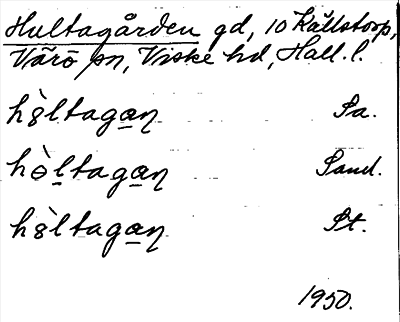 Hultagården gd, 10 Källstorp,
Värö sn, Viske hd, Hall. l.
hòltagan̥ Sa.
hòltagan̥ Sand.
hòltagan̥ St.
1950.